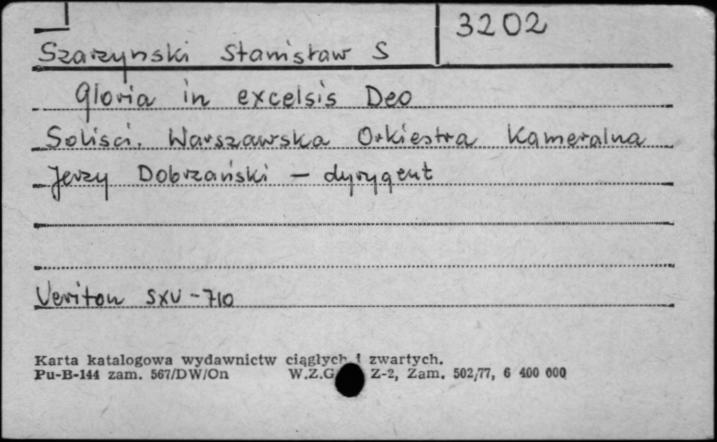 3202
Szarzynski Stanisław S
Gloria in excelsis Deo
Soliści. Warszawska Orkiestra Kameralna
Jerzy Dobrzański – dyrygent
Veriton SXV-710
Karta katalogowa wydawnictw ciągłych i zwartych.
Pu-B-144 zam. 567/DW/On W.Z.G. Z-2, Zam. 502/77, 6 400 000